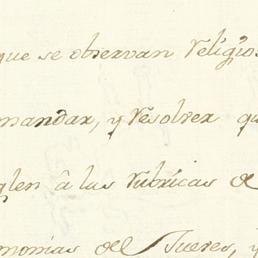 que se observan religio
mandar, y resolver qu
glen â las rubricas de
monias del Jueves, y